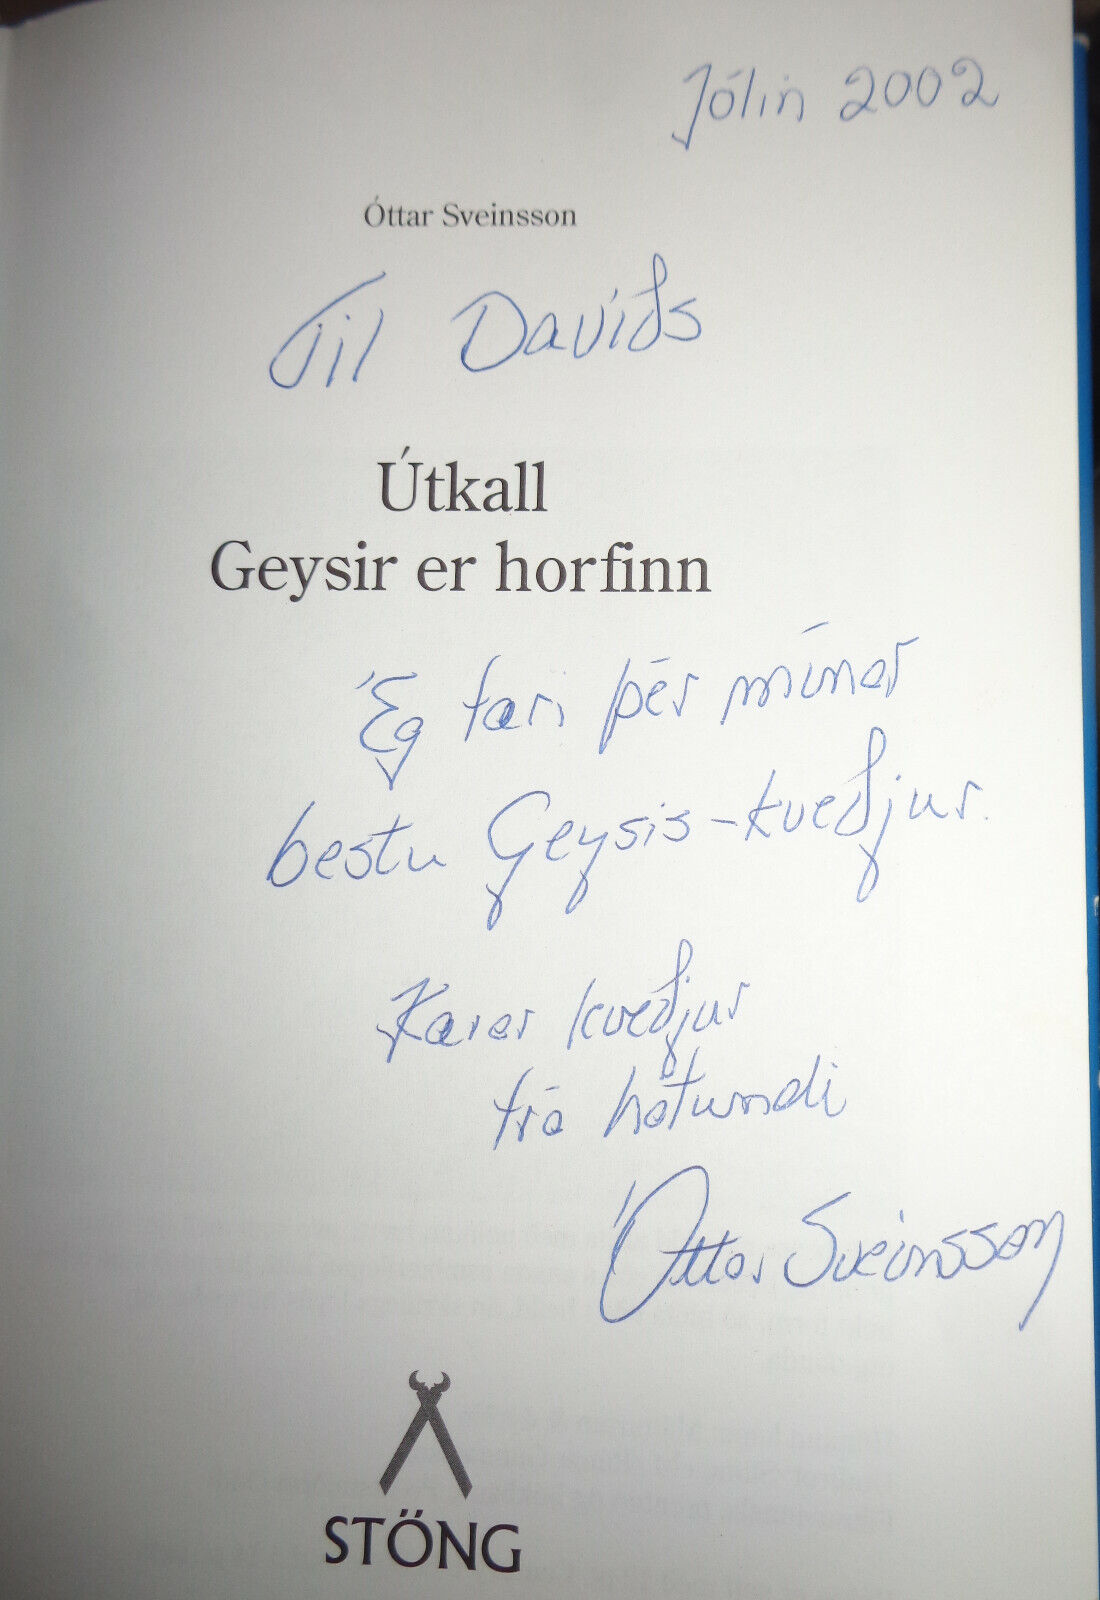 Jólin 2002
Óttar Sveinsson
Til Davíðs
Útkall
Geysir er horfinn
Ég færi þér mínar
bestu Geysis-kveðjur.
Kærar kveðjur
frá höfundi
Óttar Sveinsson
STÖNG